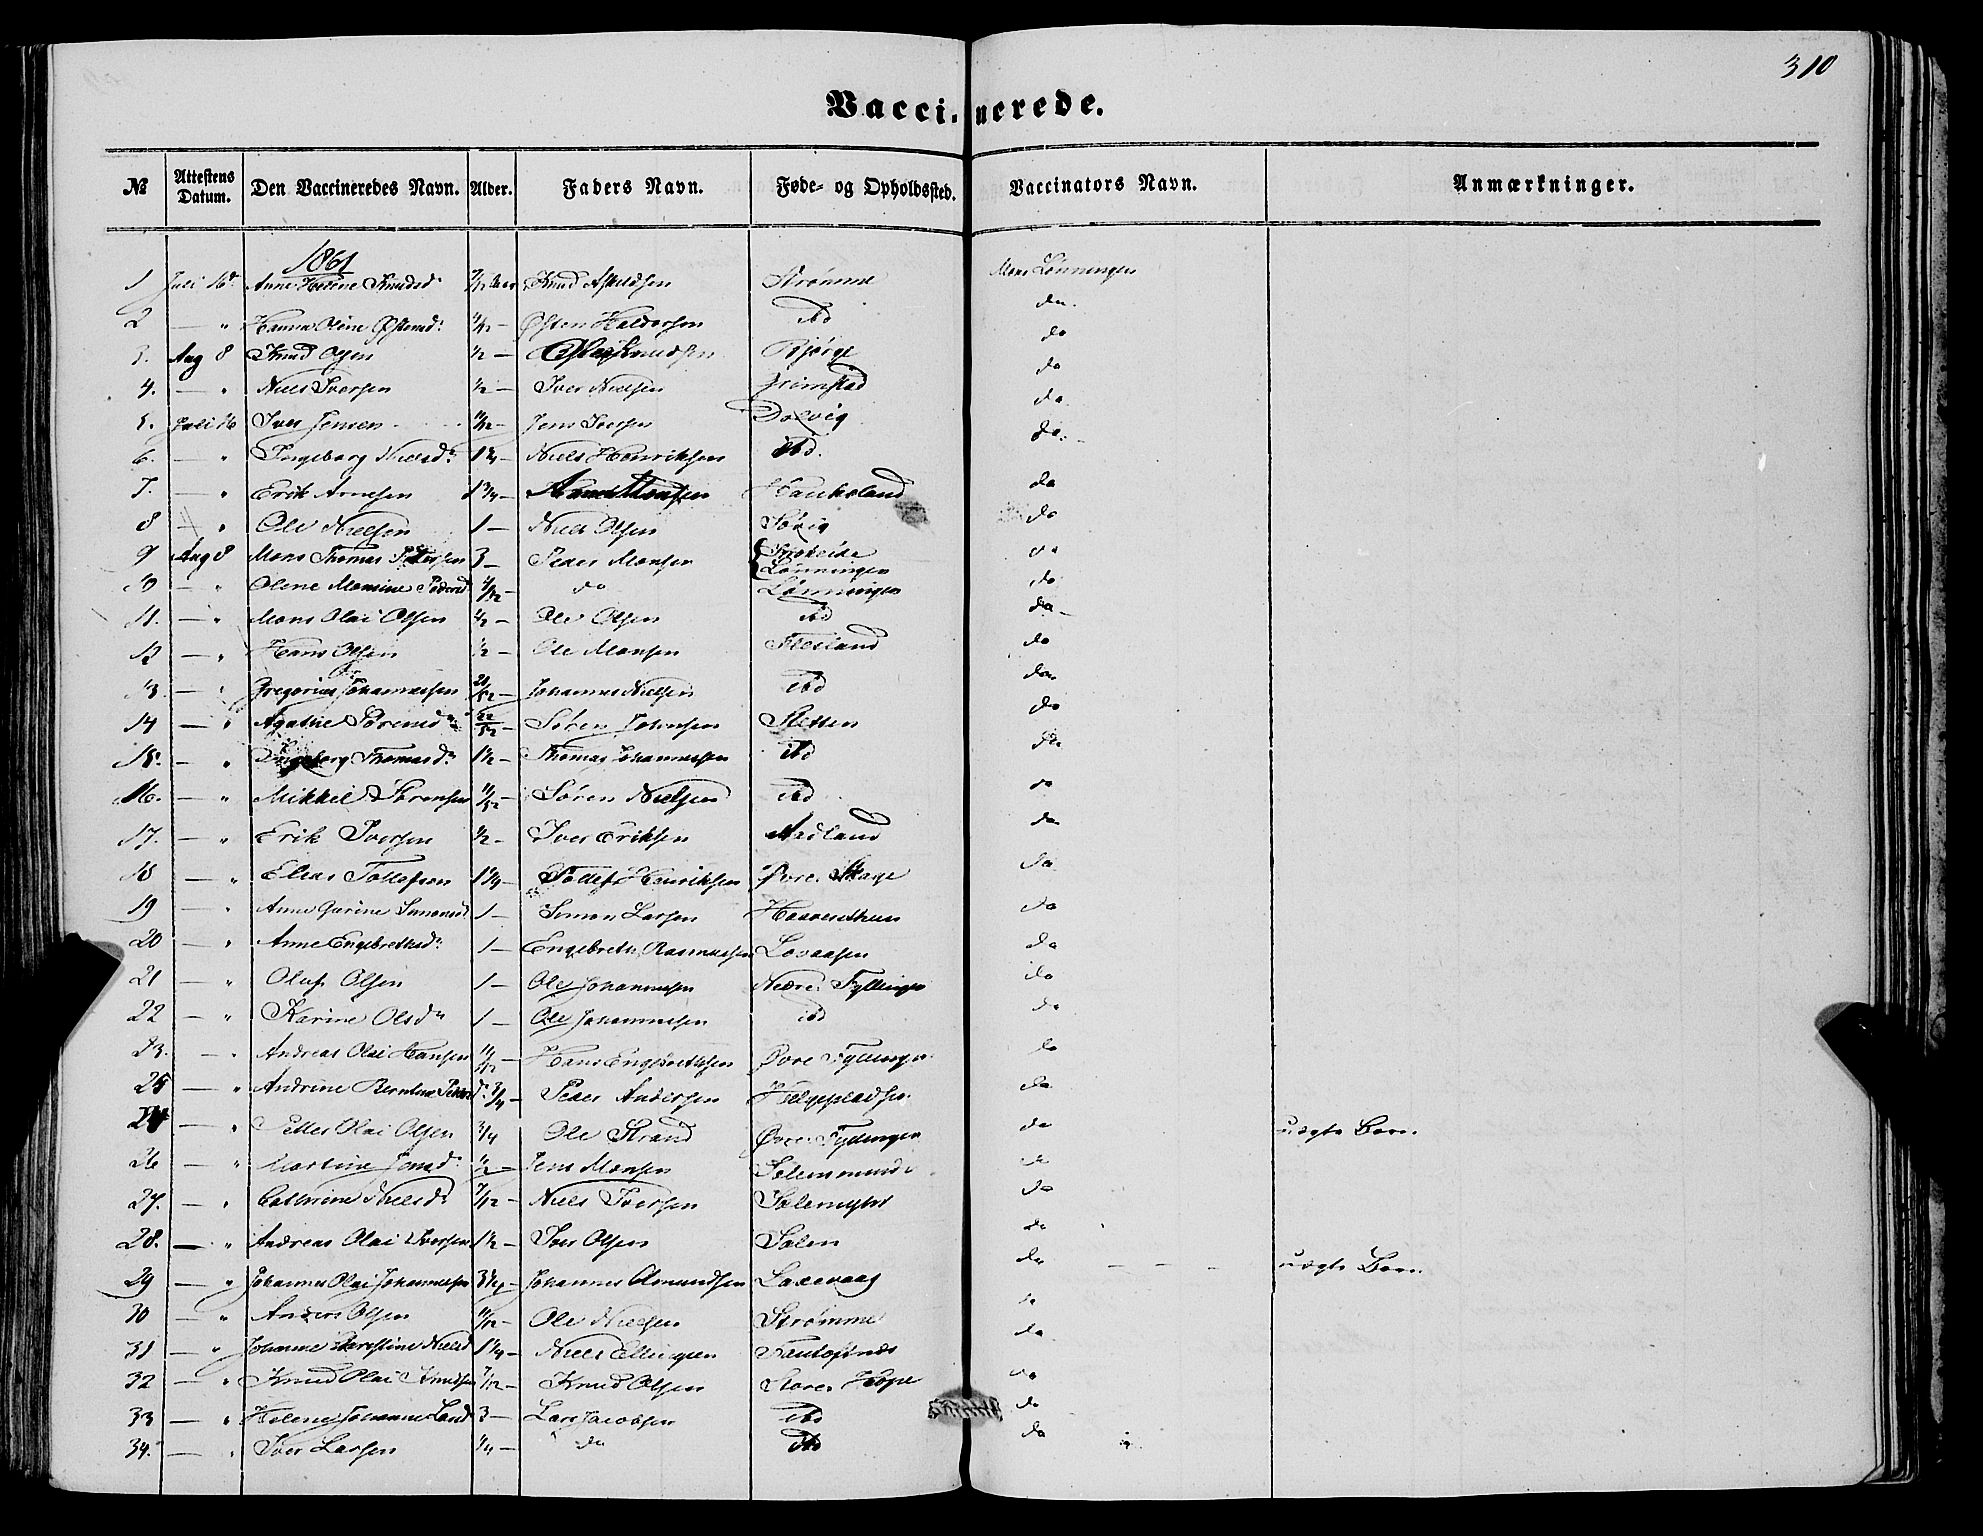 310
Vaccinerede.
№ Attestens Datum. Den Vaccineredes Navn. Alder. Faders Navn. Føde- og Opholdssted. Vaccinators Navn. Anmærkninger.
1861
1 Juli 16 Anne Helene Knudsd. 7/12 Knud Askeldsen Strømme Mons Lønningen
2 — " Hanna Oline Østensd. — Østen Haldorsen ibd do
3. Aug 8 Knud Olsen 1/2 — Ole Knudsen Bjørge do
4. — " Niels Iversen 1/2 — Iver Nielsen Grimstad do
5. Juli 16 Iver Jensen — Jens Iversen Dolvig do
6. — " Ingeborg Nielsd. — Niels Henriksen ibd. do
7. — " Erik Arnesen 1 3/4 — Arne Monsen Haukeland do
8 — " Ole Nielsen 1 — Niels Olsen Sørvig do
9 Aug 8 Mons Thomas Pedersen 3 — Peder Monsen Lønningen do
10 — " Oline Monsine Pedersd — do Lønningen do
11. — " Mons Olai Olsen 1/2 — Ole Olsen ibd do
12 — " Hans Olsen 1/2 — Ole Monsen Flesland do
13. — " Gregorius Johannessen — Johannes Nielsen ibd do
14 — " Agathe Sørensd. 22/52 — Søren Johnsen Sletten do
15. — " Ingeborg Thomasd. 1 1/2 — Thomas Johannessen ibd do
16. — " Mikkel Sørensen 11/52 — Søren Nielsen ibd do
17. — " Erik Iversen 1/2 — Iver Eriksen Aadland do
18 — " Elias Tollefsen 1 1/4 — Tollef Henriksen Øvre Skage do
19 — " Anne Gurine Simonsd 1 — Simon Larsen do
20 — " Anne Engebrethsd. 1 — Engebreth Rasmussen Lovaasen do
21 — " Oluf Olsen 1 — Ole Johannesen Nedre Fyllingen do
22 — " Karine Olsd. 1 — Ole Johannesen ibd do
23. — " Andreas Olai Hansen — Hans Engebrethsen Øvre Fyllingen do
25 — " Andrine Bernhar 3/4 — Peder Andersen do
24 — " Petter Olai Olsen 3/4 Ole Strand Øvre Fyllingen do uægte Barn
26 — " Martine Jensd. 1/2 — Jens Monsen do
27. — " Cathrine Nielsd. 7/12 — Niels Iversen do
28. — " Andreas Olai Iversen 1 1/2 — Iver Olsen Solem do
29 — " Johannes Olai Johannessen — Johannes Amundsen Laxevaag do — — — uægte Barn
30 — " Anders Olsen 11/12 — Ole Nielsen Strømme do
31 — " Johanne Nielsd 1 1/4 — Niels Ellingsen Fantoftnæs do
32 — " Knud Olai Knudsen 7/12 — Knud Olsen Store Hope do
33 — " Helene Johanne Larsd 3 — Lars Jacobsen ibd do
34. — " Iver Larsen 1/4 — do ibd do